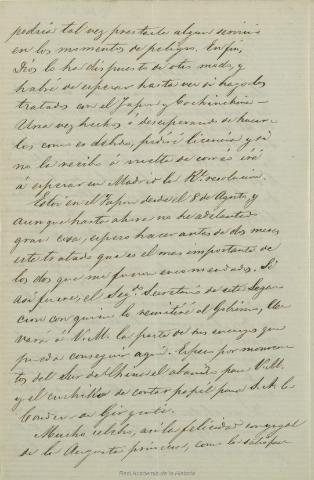 podria tal vez prestarle algun servicio
en los momentos de peligro. En fin,
Dios lo ha dispuesto de otro modo, y
habré de esperar hasta ver si hago los
tratados con el Japon y Cochinchina –
Una vez hechos ó desesperando de hacer-
los como es debido, pediré licencia y si
no la recibo á vuelta de correo iré
á esperar en Madrid la Rl. resolucion.
Estoy en el Japon desde el 8 de Agosto, y
aunque hasta ahora no he adelantado
gran cosa, espero hacer antes de dos meses
este tratado que es el mas importante de
los dos que me fueron encomendados. Si
asi fuere, el Segdo. Secretario de esta Lega-
cion con quien lo remitiré al Gobierno, lle-
vará á V.M. la parte de sus encargos que
pueda conseguir aquí. Espero por momen-
tos del Sur de China el abanico para V.M.
y el cuchillo de cortar papel para S.A. la
Condesa de Girgenti.
Mucho celebro, asi la felicidad conyugal
de la Augusta princesa, como la satisfac
Real Academia de la Historia